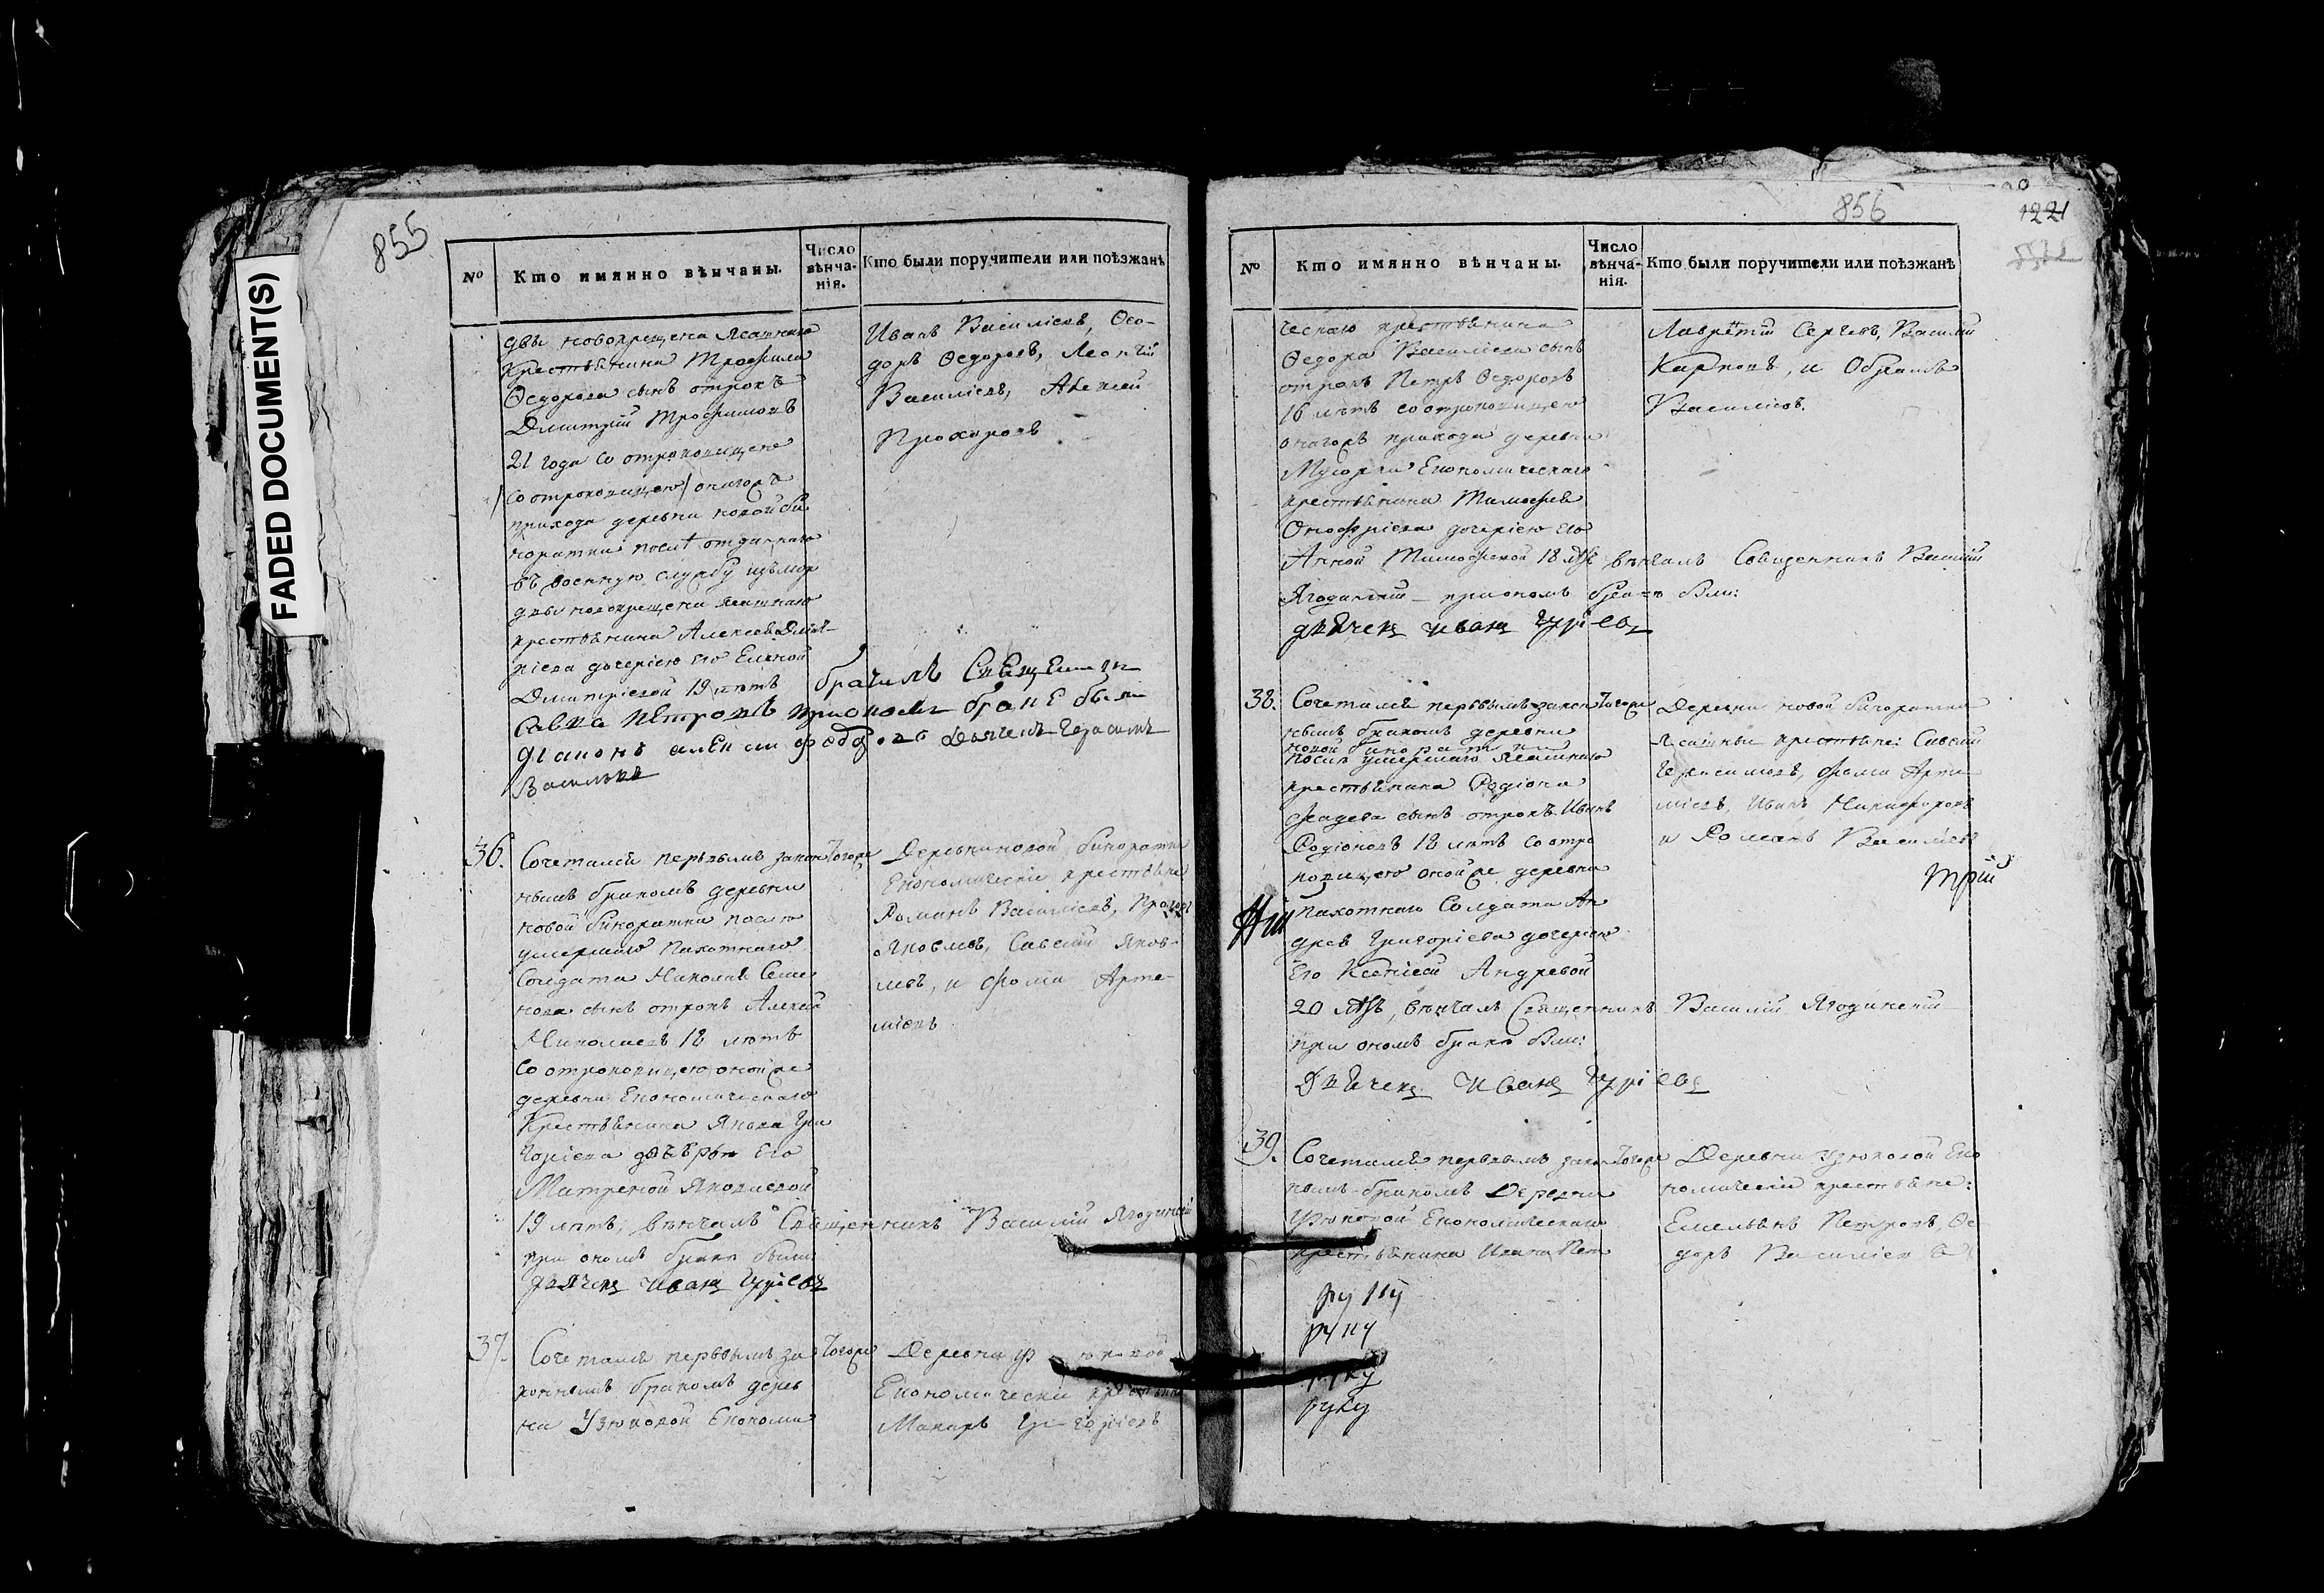 FADED DOCUMENT(S)
855
№
Кто имянно вѣнчаны.
Число вѣнча-нія.
Кто были поручители или поѣзжанѣ
двы новокрещена ясашнаго
крестьянина Трофима
Ѳедорова сынъ отрокъ
Дмитрій Трофимовъ
21 года со отроковицею
/со отроковицею/ онагожъ
прихода деревни новой би
норатки послѣ отданнаго
въ военную службу измор
двы новокрещена ясашнаго
крестьянина Алексея Дмит-
ріева дочерію его Еленой
Дмитріевой 19 лѣтъ
Савва Петровъ приономъ браке были
Диаконъ алексей
Дьячекъ Герасимъ
Васильевъ
Иванъ Василіевъ, Ѳео-
доръ Ѳедоровъ, Леонтій
Василіевъ, Алексей
Прохоровъ
36.
Сочетался первымъ закон
нымъ бракомъ деревни
новой бинорадки послѣ
умершаго пахотнаго
Солдата Николая Семе
нова сынъ отрокъ Алексей
Николаевъ 18 лѣтъ
Со отроковицею оной же
деревни Економическаго
Крестьянина Якова Гри
горіева дочерью Его
Матреной Яковлевой
19 лѣтъ, вѣнчалъ Священникъ Василій Ягодинскій
при ономъ браке были:
дьячекъ иванъ гуріевъ
Тогоже
Деревни новой биноратки
Економическіе крестьяне
Романъ Василіевъ,
Яковлевъ, Савелій Яков-
левъ, и Фома Арте-
міевъ
37.
Сочетался первымъ за
коннымъ бракомъ дерев
ни Узюковой Економи
Тогоже
Деревни узюковой
Економическіе крестьяне
Макаръ Григоріевъ
856
1221
№
Кто имянно вѣнчаны.
Число вѣнча-нія.
Кто были поручители или поѣзжанѣ
ческаго крестьянина
Ѳедора Василіева сынъ
отрокъ Петръ Ѳедоровъ
16 лѣтъ со отроковицею
онагожъ прихода деревни
Мусорки Економическаго
крестьянина Тимофея
Онофріева дочерію его
Анной Тимофеевой 18 лѣтъ вѣнчалъ Священникъ Василій
Ягодинскій приономъ браке были:
дьячекъ иванъ гуріевъ
Лаврѣтій Сергѣевъ, Василій
Карповъ, и Абрамъ
Василіевъ.
38.
Сочетался первымъ закон
нымъ бракомъ деревни
новой бинорадки
послѣ умершаго ясашнаго
крестьянина Родіона
Фадеева сынъ отрокъ Иванъ
Родіоновъ 18 лѣтъ со отро
ковицею оной же деревни
пахотнаго Солдата Ан
дрея Григоріева дочерью
Его Ксеніей Андреевой
20 лѣтъ, вѣнчалъ Священникъ Василій Ягодинскій
при ономъ браке были:
Дьячекъ иванъ гуріевъ
Тогоже
Деревни новой бинорадки
Ясашные крестьяне: Савелій
Герасимовъ, Фома Арте
міевъ, Иванъ Никифоровъ
и Романъ Василіевъ
трій
39.
Сочетался первымъ закон
нымъ бракомъ Деревни
Узюковой Економическаго
крестьянина Ивана Пет
Тогоже
Деревни узюковой Еко
номическіе крестьяне:
Емельянъ Петровъ, Ѳе
доръ Василіевъ
руку
руку
руку
руку